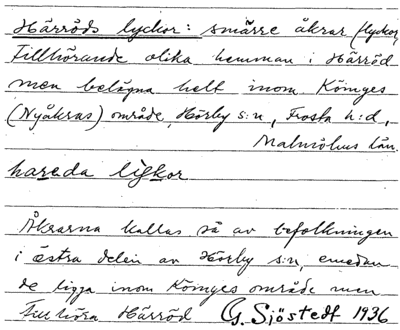 Härröds lyckor: smärre åkrar (lyckor)
Tillhörande olika hemman i Härröd
men belägna helt inom Köinges
(Nyåkras) område, Hörby s:n, Frosta h:d,
Malmöhus län.
hareda lykkor
Åkrarna kallas så av befolkningen
i östra delen av Hörby s:n, emedan
de ligga inom Köinges område men
Tillhöra Härröd G. Sjöstedt 1936